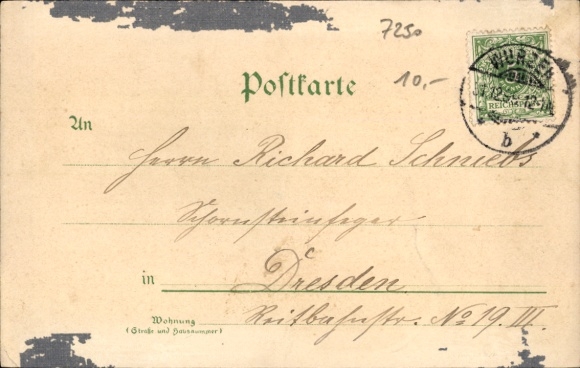 7250
10,-
WURZEN
REICHSPOST
b
Postkarte
An
Herrn Richard Schniebs
Schornsteinfeger
in Dresden
Wohnung
(Straße und Hausnummer)
Reitbahnstr. No 19. III.